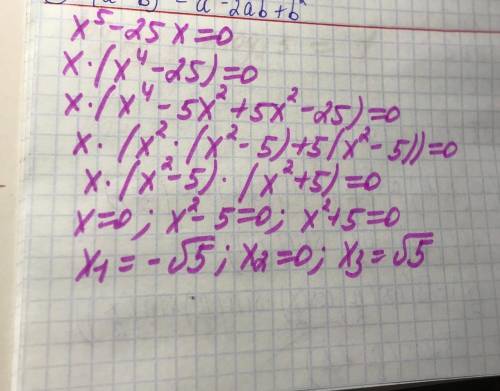 (a-b)² = a² - 2ab + b²
x⁵ - 25x = 0
x · (x⁴ - 25) = 0
x · (x⁴ - 5x² + 5x² - 25) = 0
x · (x² · (x² - 5) + 5(x² - 5)) = 0
x · (x² - 5) · (x² + 5) = 0
x = 0 ; x² - 5 = 0 ; x² + 5 = 0
x₁ = -√5 ; x₂ = 0 ; x₃ = √5